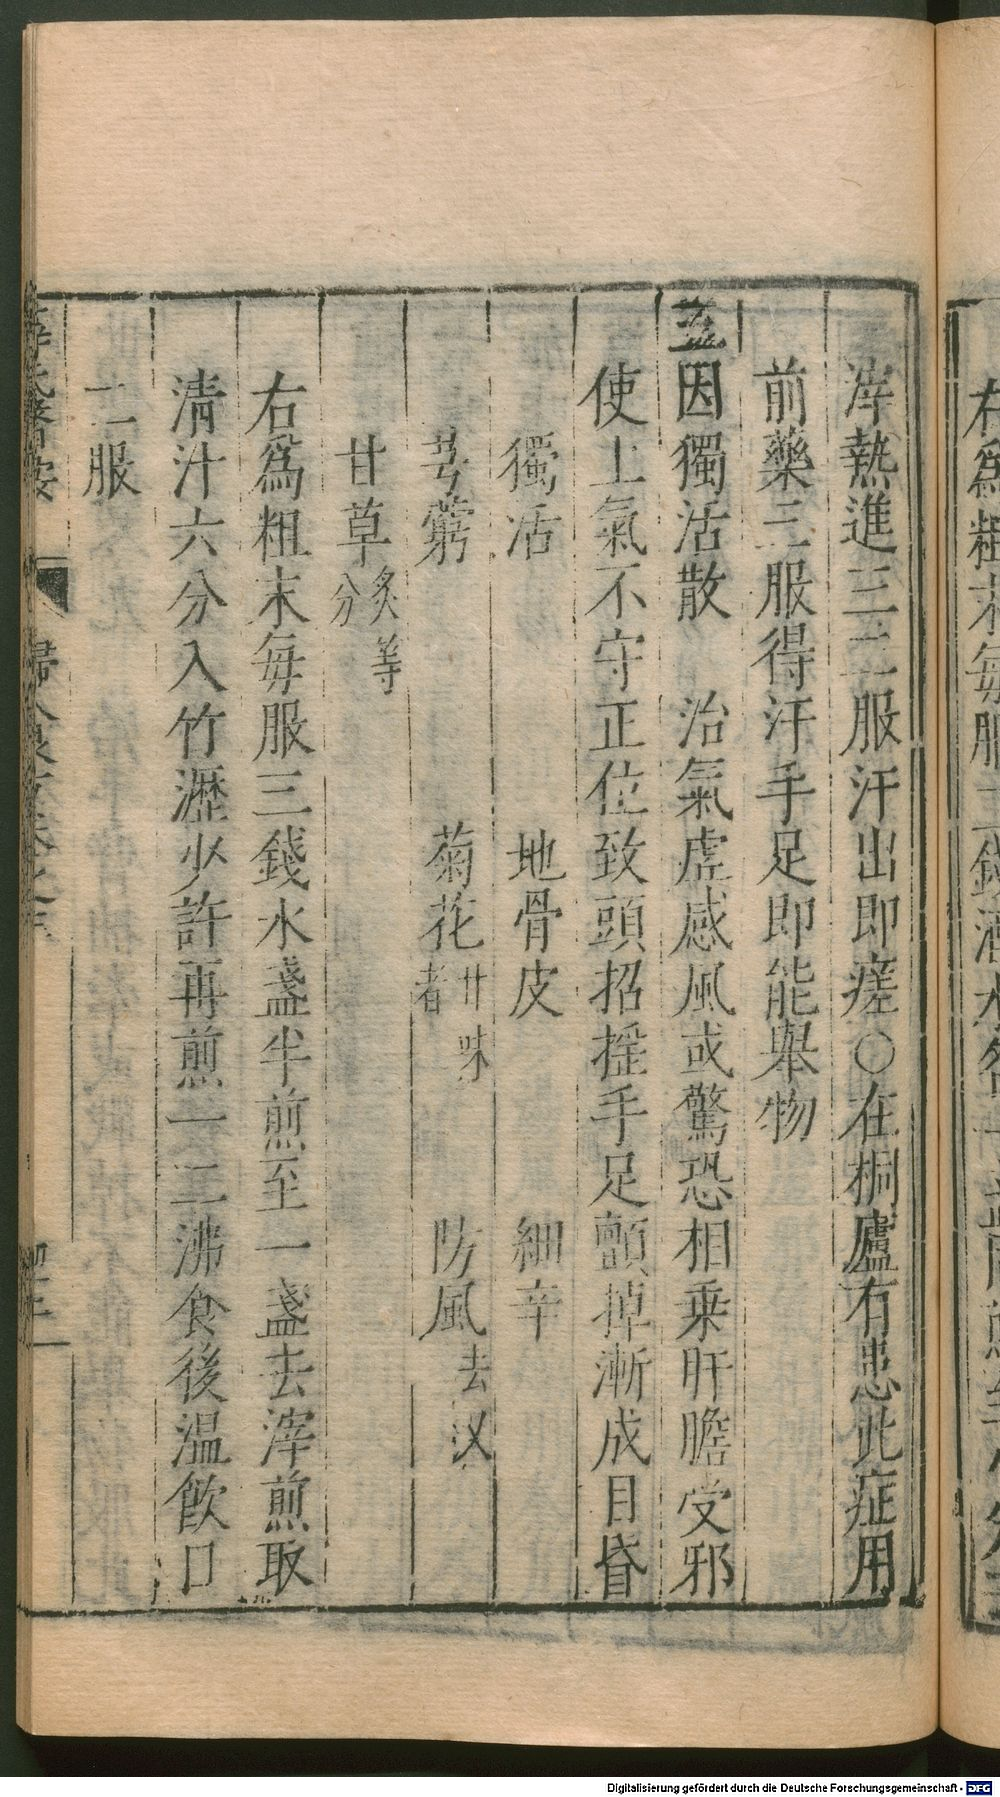 滓熱進三二服汗出即瘥○在桐廬有患此症用
前藥三服得汗手足即能舉物
五因獨活散　治氣虛感風或驚恐相乘肝膽受邪
使上氣不守正位致頭招搖手足顫掉漸成目昏
獨活　地骨皮　細辛
芎藭　菊花廿味者　防風去汊
甘草炙等分
右爲粗末每服三錢水盞半煎至一盞去滓煎取
清汁六分入竹瀝少許再煎一二沸食後溫飲日
二服
薛氏醫按　婦人良方卷之三
Digitalisierung gefördert durch die Deutsche Forschungsgemeinschaft - DFG